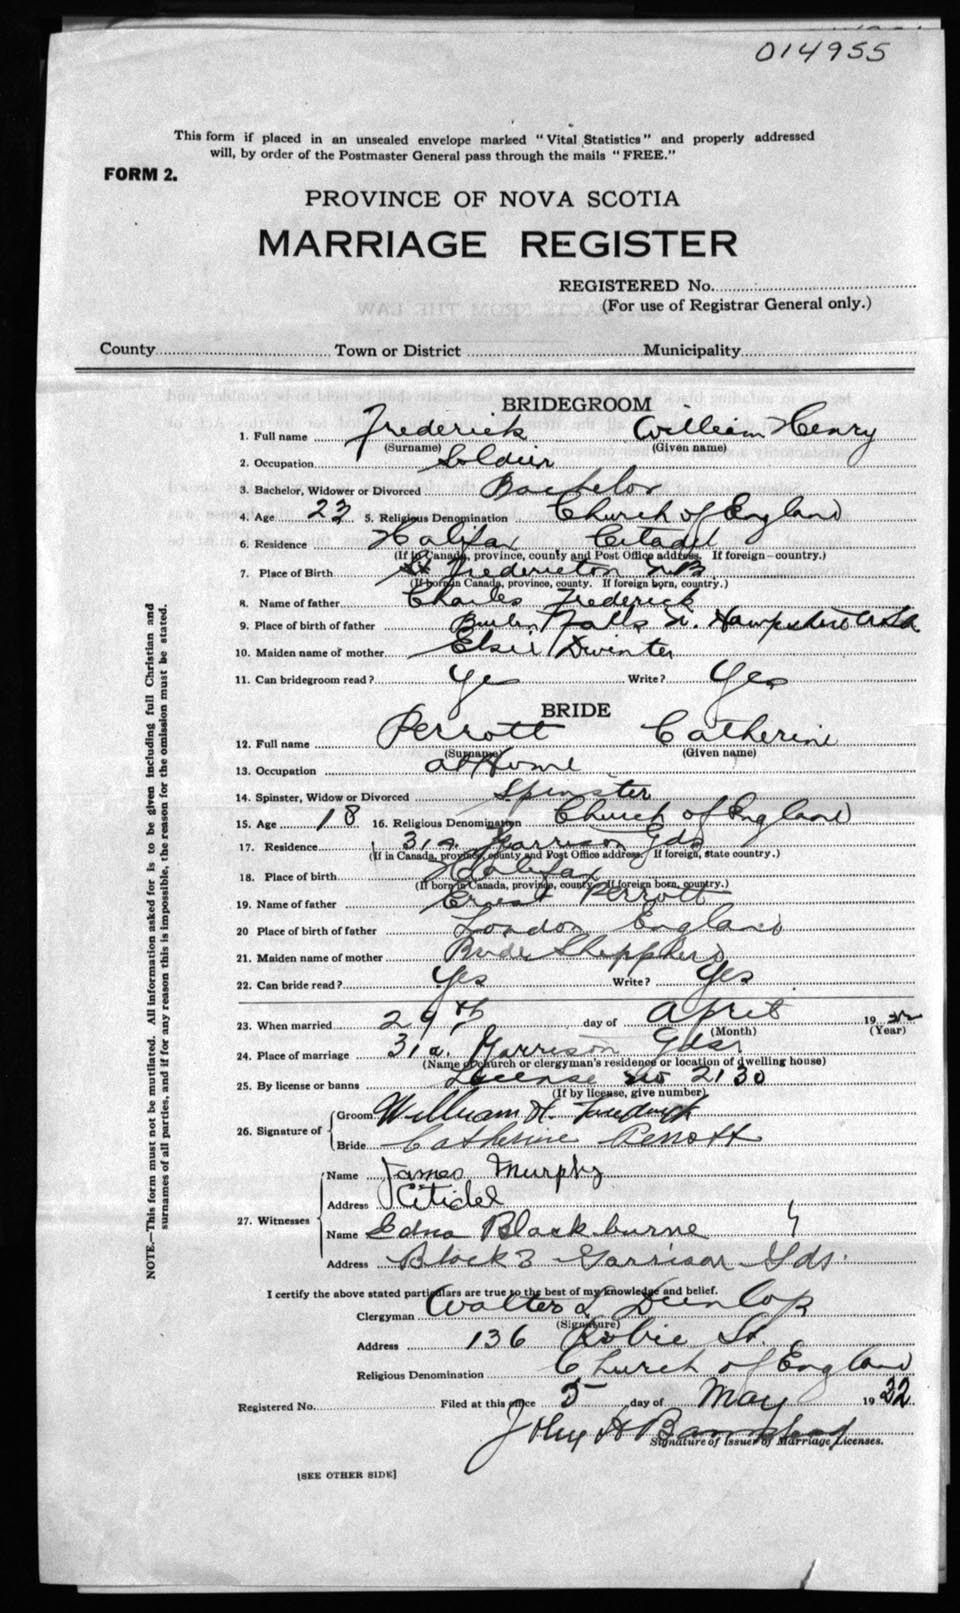 014955
This form if placed in an unsealed envelope marked "Vital Statistics" and properly addressed
will, by order of the Postmaster General pass through the mails "FREE."
FORM 2.
PROVINCE OF NOVA SCOTIA
MARRIAGE REGISTER
REGISTERED No.
(For use of Registrar General only.)
County Town or District Municipality
BRIDEGROOM
1. Full name Frederick William Henry
(Surname) (Given name)
2. Occupation Soldier
3. Bachelor, Widower or Divorced Bachelor
4. Age 23 5. Religious Denomination Church of England
6. Residence Halifax Citadel
(If in Canada, province, county and Post Office address. If foreign—country.)
7. Place of Birth Fredericton N.B
(If born in Canada, province, county. If foreign born, country.)
8. Name of father Charles Frederick
9. Place of birth of father Falls N. Hampshire
10. Maiden name of mother Elsie Dwinter
11. Can bridegroom read? Yes Write? Yes
BRIDE
12. Full name Perrott Catherine
(Surname) (Given name)
13. Occupation at Home
14. Spinster, Widow or Divorced Spinster
15. Age 18 16. Religious Denomination Church of England
17. Residence 31a Garrison Gds
(If in Canada, province, county and Post Office address. If foreign, state country.)
18. Place of birth Halifax
(If born in Canada, province, county. If foreign born, country.)
19. Name of father Ernest Perrott
20 Place of birth of father London England
21. Maiden name of mother Sheppherd
22. Can bride read? Yes Write? Yes
23. When married 29th day of April 1932
(Month) (Year)
24. Place of marriage 31a. Garrison Gds
(Name of church or clergyman's residence or location of dwelling house)
25. By license or banns License no 2130
(If by license, give number)
26. Signature of Groom William H. Frederick
Bride Catherine Perrott
27. Witnesses Name James Murphy
Address Citidel
Name Edna Blackburne
Address Block 3 Garrison Gds.
I certify the above stated particulars are true to the best of my knowledge and belief.
Clergyman Walter L Dunlop
(Signature)
Address 136 Robie St.
Religious Denomination Church of England
Registered No. Filed at this office 5 day of May 1932
John A
Signature of Issuer of Marriage Licenses.
[SEE OTHER SIDE]
NOTE.—This form must not be mutilated. All information asked for is to be given including full Christian and
surnames of all parties, and if for any reason this is impossible, the reason for the omission must be stated.